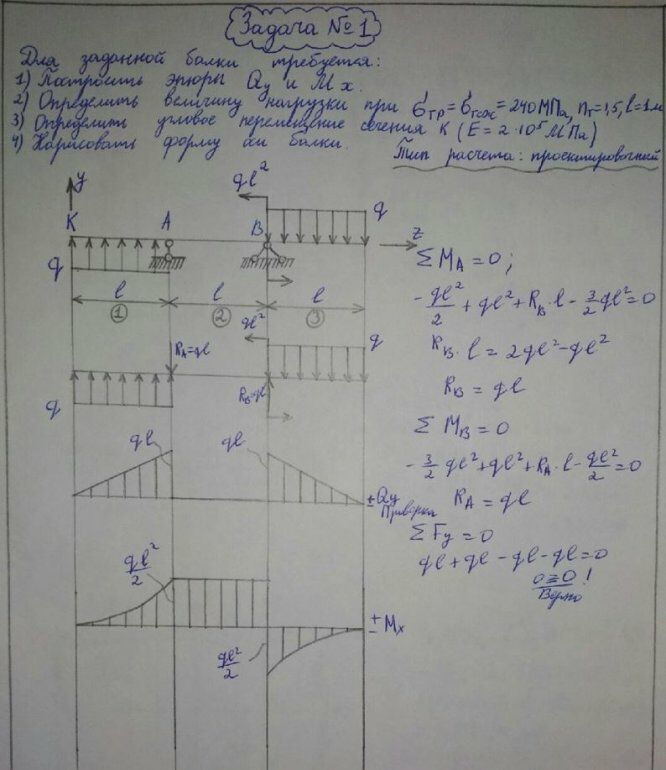 Задача № 1
Для заданной балки требуется:
1) Построить эпюры Qy и Mx.
2) Определить величину нагрузки при σтр = σтсж = 240 МПа, nт = 1,5, l = 1м
3) Определить угловое перемещение сечения K (E = 2·10⁵ МПа)
4) Нарисовать форму оси балки.
Тип расчета: проектировочный
y
ql²
q
K
A
B
z
q
l
l
l
1
2
3
ql²
q
RA=ql
RB=ql
q
ql
ql
± Qy
ql²/2
± Mx
ql²/2
ΣMA = 0;
-ql²/2 + ql² + RB·l - 3/2 ql² = 0
RB·l = 2ql² - ql²
RB = ql
ΣMB = 0
-3/2 ql² + ql² + RA·l - ql²/2 = 0
RA = ql
Проверка
ΣFy = 0
ql + ql - ql - ql = 0
0 ≡ 0!
Верно